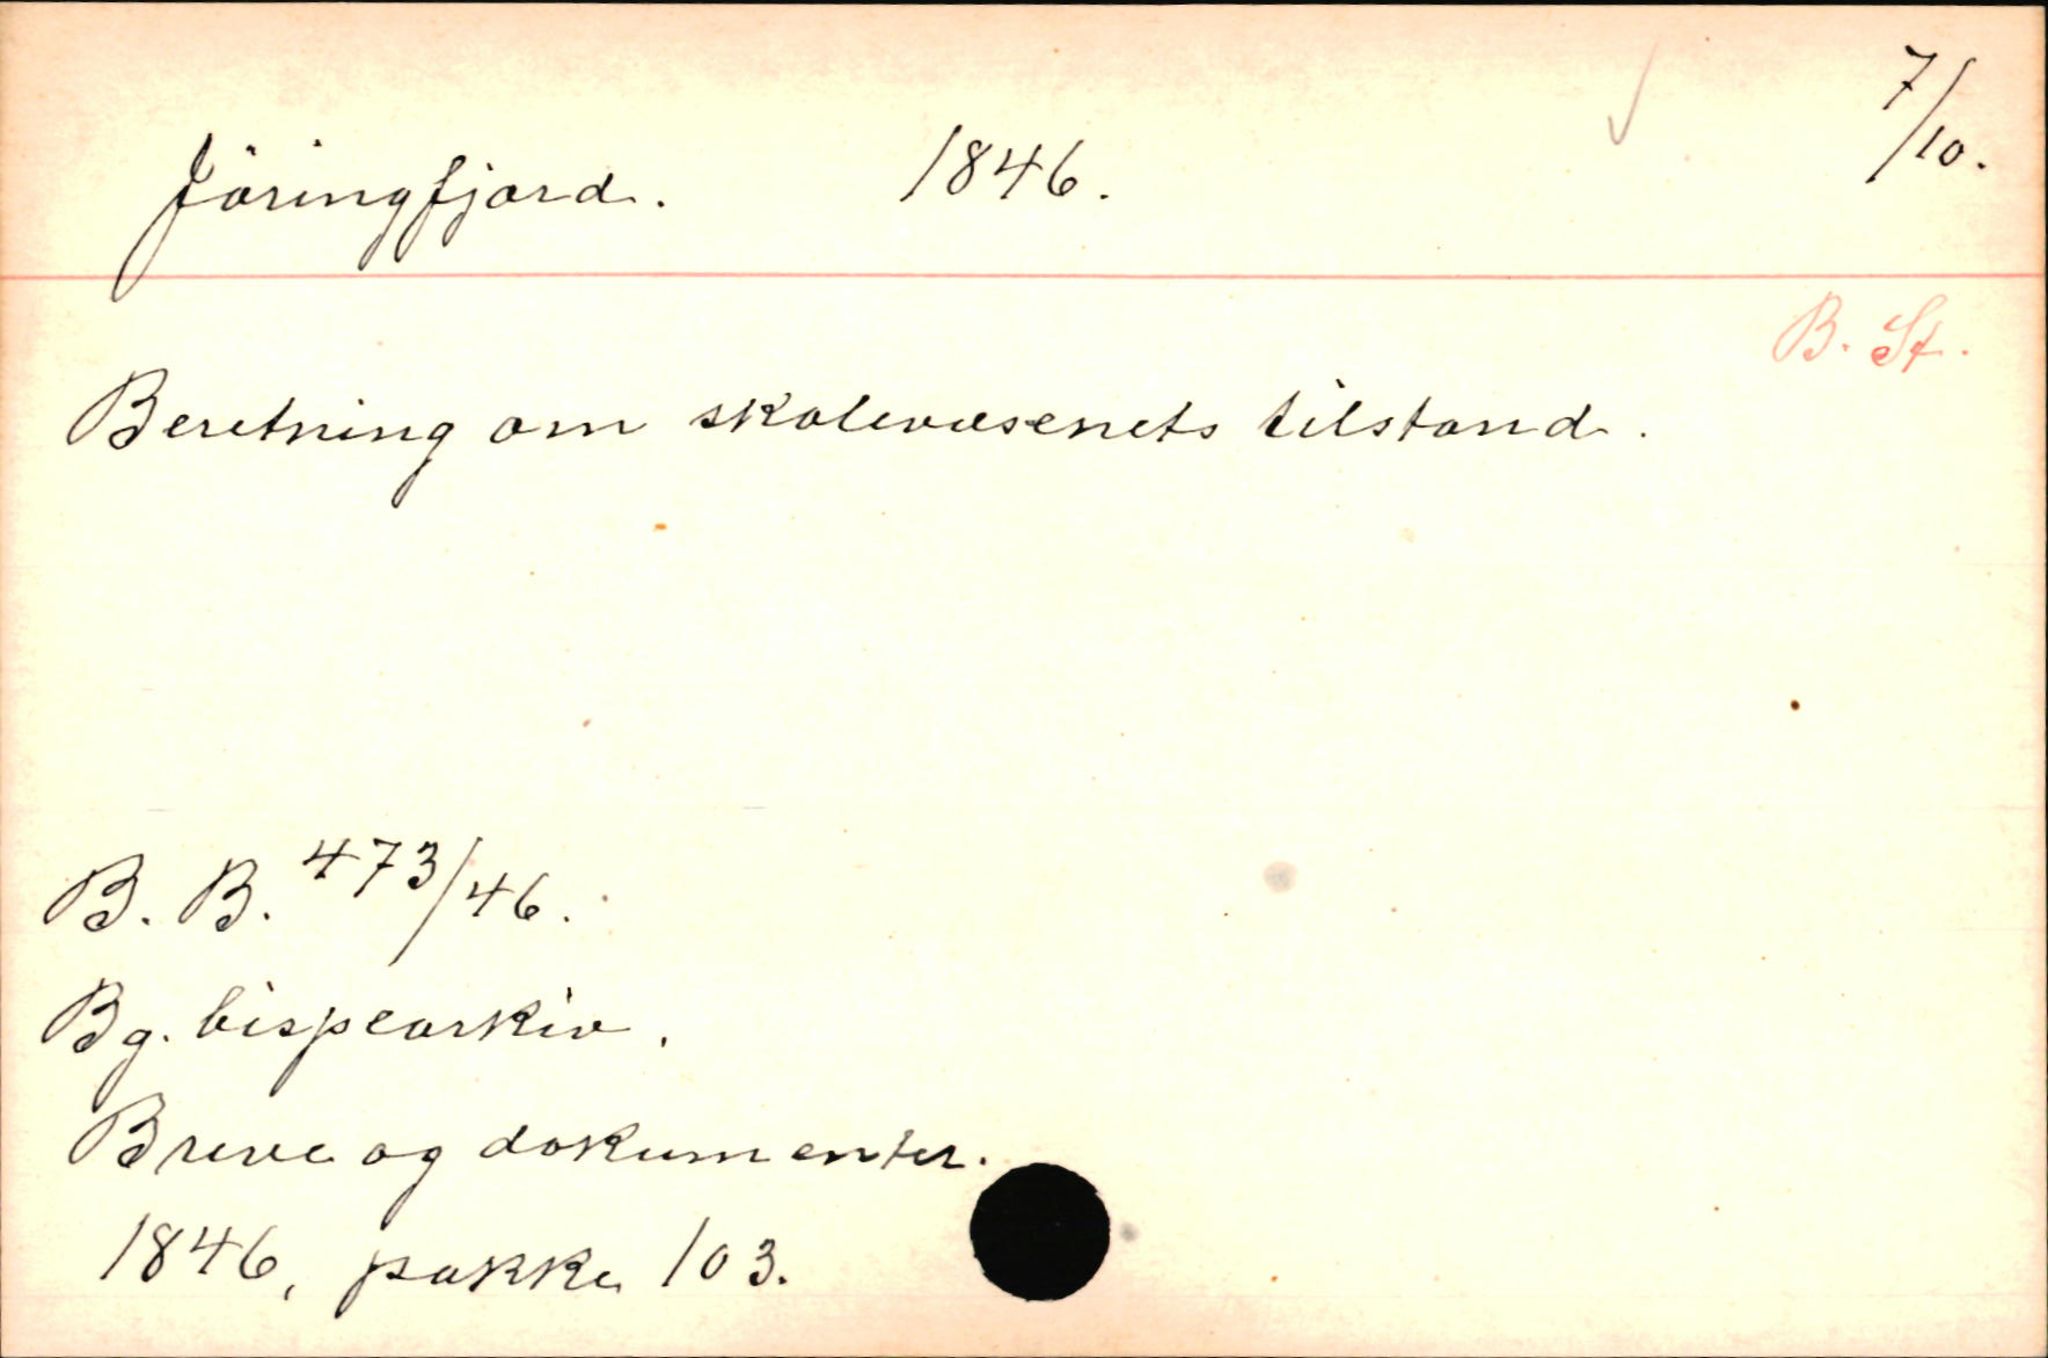 7/10.
Jöringfjord. 1846.
B. St.
Beretning om skolevæsenets tilstand.
B. B. 473/46.
Bg. bispearkiv.
Breve og dokumenter.
1846, pakke 103.